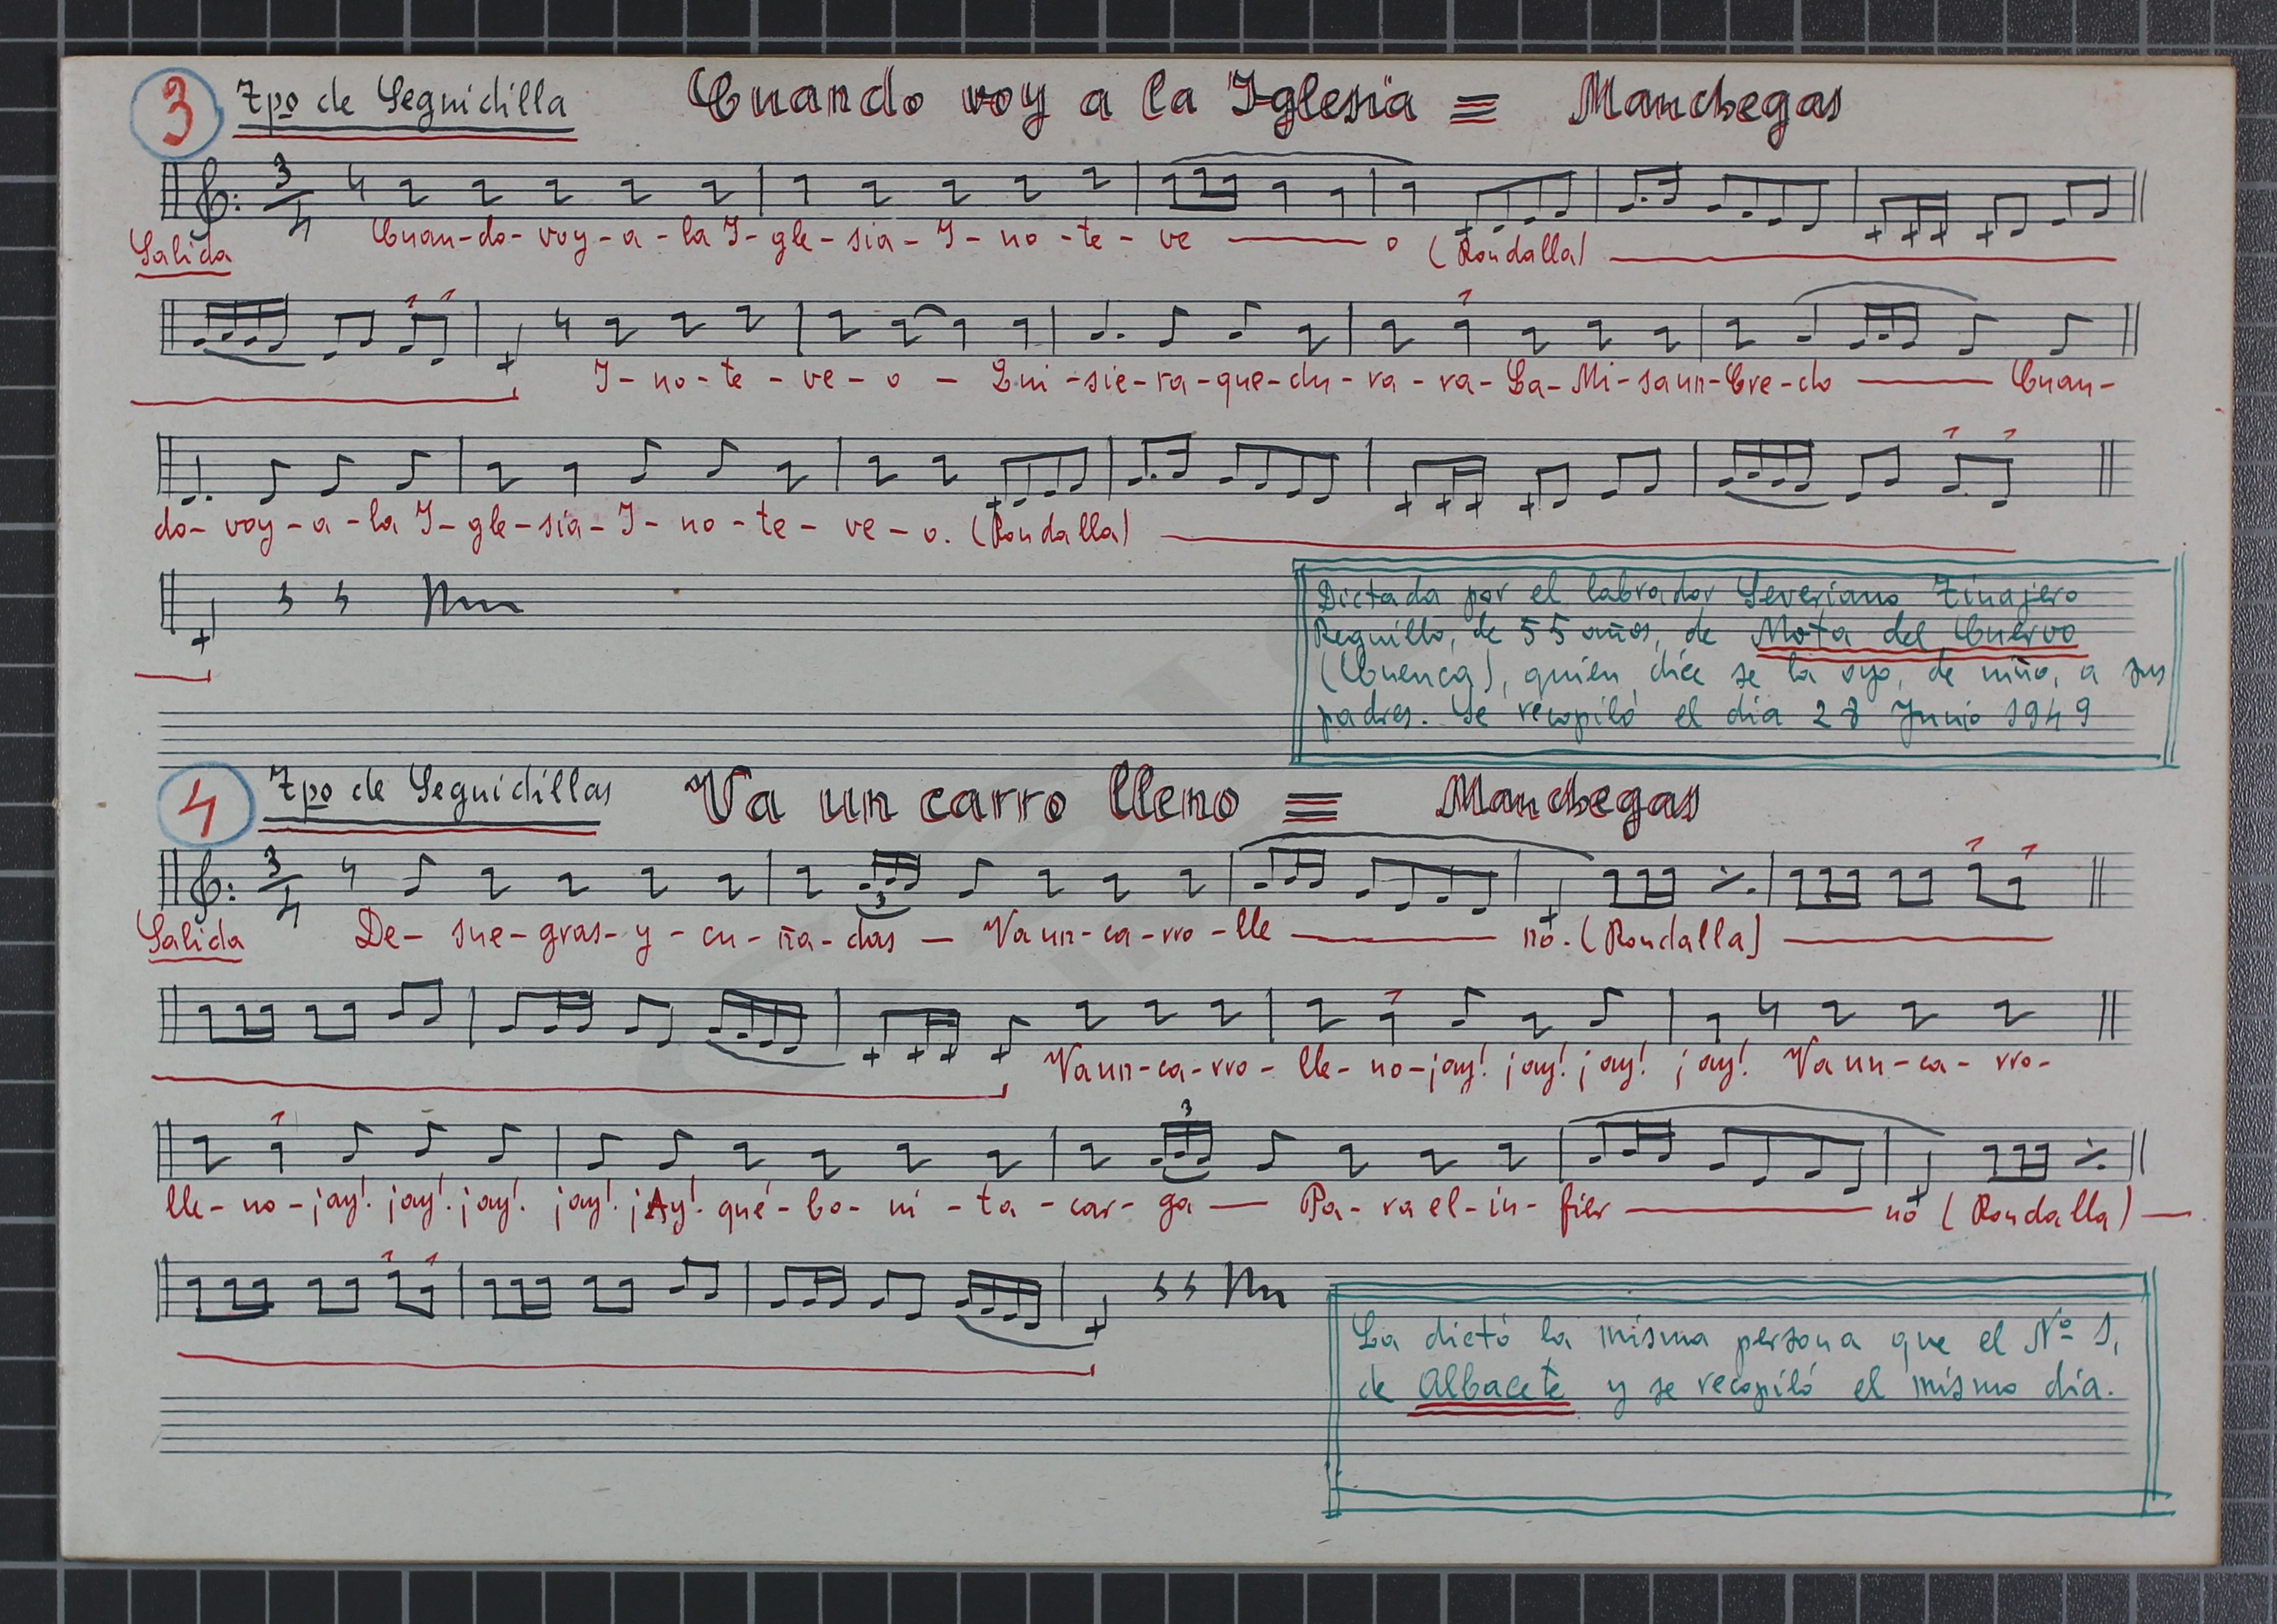 3 Tpo de Seguidilla Cuando voy a la Iglesia = Manchegas
3/4
Salida Cuan-do-voy-a-la I-gle-sia-Y-no-te-ve — o (Rondalla)
Y-no-te-ve-o — Qui-sie-ra-que-du-ra-ra-La-Mi-saun-Cre-do — Cuan-
do-voy-a-la I-gle-sia-Y-no-te-ve-o. (Rondalla)
Dictada por el labrador Severiano Tinajero
Reguillo, de 55 años, de Mota del Cuervo
(Cuenca), quién dice se la oyo, de niño, a sus
padres. Se recopiló el dia 28 Junio 1949
4 Tpo de Seguidillas Va un carro lleno = Manchegas
3/4
3
Salida De-sue-gras-y-cu-ña-das — Va un-ca-rro-lle — no. (Rondalla)
Va un-ca-rro-lle-no-¡ay! ¡ay! ¡ay! ¡ay! Va un-ca-rro-
3
lle-no-¡ay! ¡ay! ¡ay! ¡ay! ¡Ay! qué-bo-ni-ta-car-ga — Pa-ra el-in-fier — no (Rondalla) —
La dictó la misma persona que el Nº 1,
de Albacete y se recopiló el mismo dia.